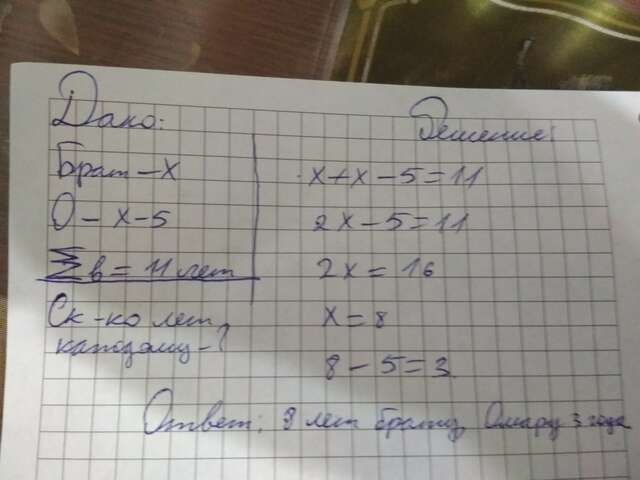 Дано:
Решение:
Брат – х
О – х – 5
Σв = 11 лет
Ск-ко лет
каждому – ?
х + х – 5 = 11
2х – 5 = 11
2х = 16
х = 8
8 – 5 = 3.
Ответ: 8 лет брату, Омару 3 года